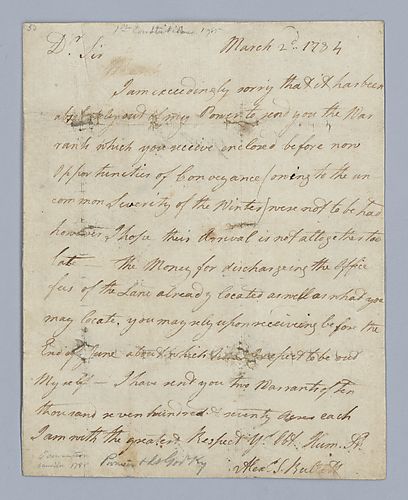 Dr Sir March 2d. 1784
I am exceedingly sorry that it has been
absolutely out of my Power to send you the War
rants which you receive enclosed before now
Opportunities of Conveyance (owing to the un
common Severity of the Winter) were not to be had
however, I hope their Arrival is not altogether too
late the Money for discharging the Office
fees of the Land already located as well as what you
may locate, you may rely upon receiveing before the
End of June about which time I expect to be out
Myself — I have send you two Warrants of ten
thousand seven hundred & seventy Acres each
I am with the greatest Respect Yr. Ob. Hum. St.
Alexr. S. Bullitt
Pioneer